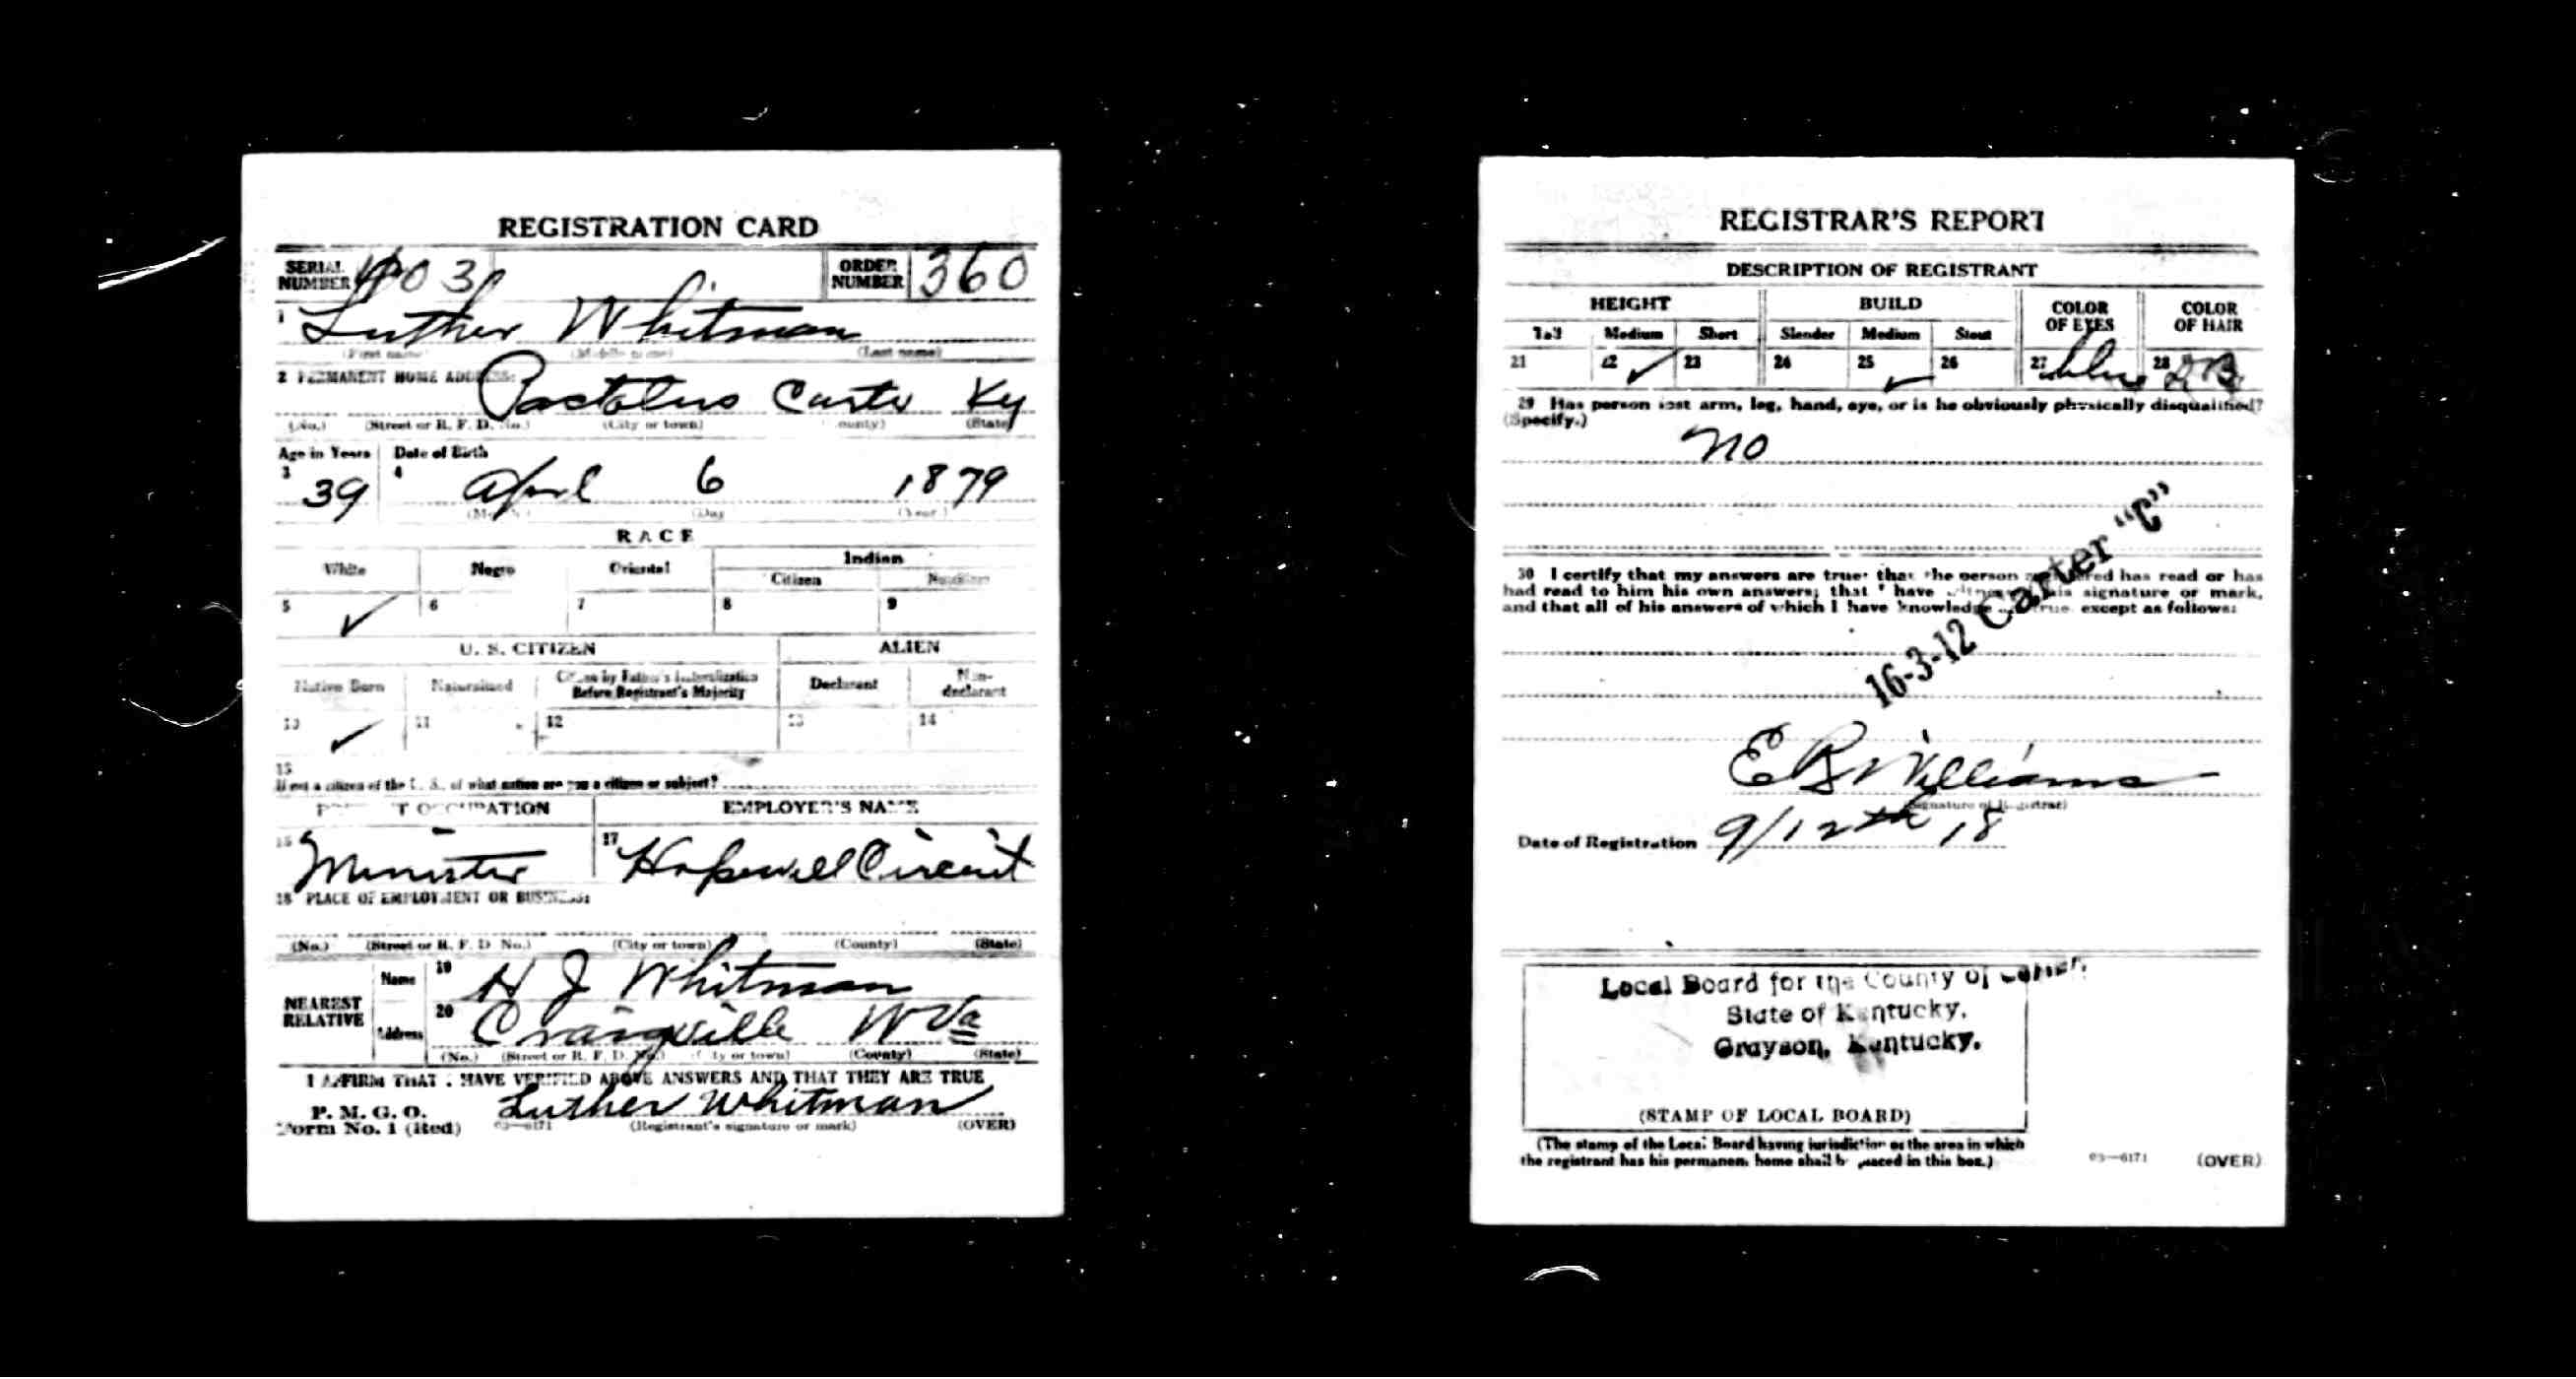 REGISTRATION CARD
SERIAL NUMBER 403 ORDER NUMBER 360
1 Luther Whitman
(First name) (Middle name) (Last name)
2 PERMANENT HOME ADDRESS:
Pactolus Carter Ky
(No.) (Street or R. F. D. No.) (City or town) (County) (State)
Age in Years Date of Birth
3 39 4 April 6 1879
(Month) (Day (Year)
RACE
White Negro Oriental Indian
Citizen Noncitizen
5 ✓ 6 7 8 9
U. S. CITIZEN ALIEN
Native Born Naturalized Citizen by Father's Naturalization Before Registrant's Majority Declarant Non-declarant
10 ✓ 11 12 13 14
15
If not a citizen of the U. S., of what nation are you a citizen or subject?
PRESENT OCCUPATION EMPLOYER'S NAME
16 Minister 17 Hopewell Circuit
18 PLACE OF EMPLOYMENT OR BUSINESS:
(No.) (Street or R. F. D. No.) (City or town) (County) (State)
NEAREST RELATIVE Name 19 H J Whitman
Address 20 Craigsville W Va
(No.) (Street or R. F. D. No.) (City or town) (County) (State)
I AFFIRM THAT I HAVE VERIFIED ABOVE ANSWERS AND THAT THEY ARE TRUE
P. M. G. O.
Form No. 1 (Red) 03—6171 Luther Whitman
(Registrant's signature or mark) (OVER)
REGISTRAR'S REPORT
DESCRIPTION OF REGISTRANT
HEIGHT BUILD COLOR OF EYES COLOR OF HAIR
Tall Medium Short Slender Medium Stout
21 22 ✓ 23 24 25 ✓ 26 27 blue 28
29 Has person lost arm, leg, hand, eye, or is he obviously physically disqualified?
(Specify.)
no
30 I certify that my answers are true; that the person registered has read or has
had read to him his own answers; that I have witnessed his signature or mark,
and that all of his answers of which I have knowledge are true, except as follows:
16-3-12 Carter "C"
E B Williams
(Signature of Registrar)
Date of Registration 9/12th 18
Local Board for the County of Carter,
State of Kentucky,
Grayson, Kentucky.
(STAMP OF LOCAL BOARD)
(The stamp of the Local Board having jurisdiction of the area in which
the registrant has his permanent home shall be placed in this box.)
03—6171 (OVER)